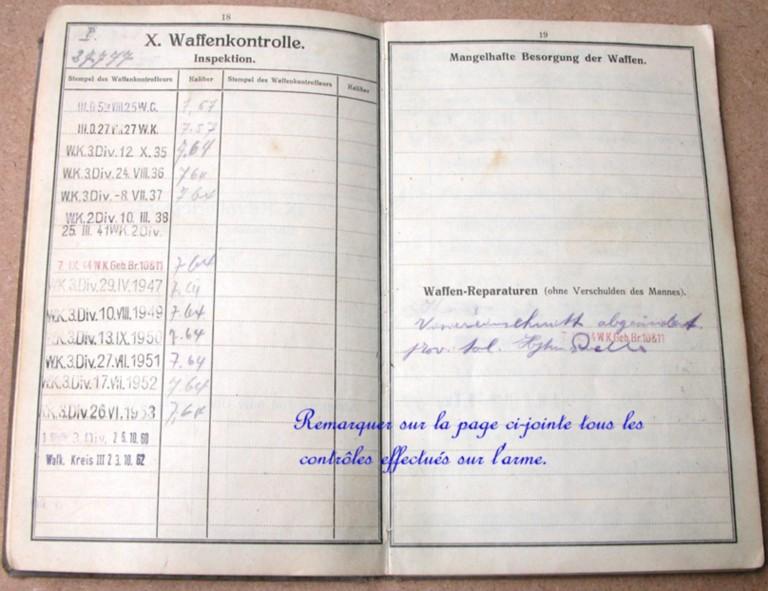 18
P.
37777
X. Waffenkontrolle.
Inspektion.
Stempel des Waffenkontrolleurs Kaliber Stempel des Waffenkontrolleurs Kaliber
27 W.K. 7.57
W.K.3.Div.12. X. 35 7,64
W.K.3.Div.24. VIII.36 7,64
W.K.3.Div.-8. VII.37 7,64
W.K.2.Div. 10. III. 38
25. III. 41 W.K. 2.Div.
7. IX. 44 W.K.Geb.Br.10&11 7,64
W.K.3.Div.29.IV.1947
W.K.3.Div.10.VIII.1949 7.64
W.K.3.Div.13.IX.1950 7.64
W.K.3.Div.27.VII.1951 7.64
W.K.3.Div.17.VII.1952 7,64
W.K.3.Div.26.VI.1953 7,64
3. Div. 25.10.60
Wafk. Kreis III 23.10.62
19
Mangelhafte Besorgung der Waffen.
Waffen-Reparaturen (ohne Verschulden des Mannes).
abgeändert
44 W.K.Geb.Br.10&11
Remarquer sur la page ci-jointe tous les
contrôles effectués sur l'arme.